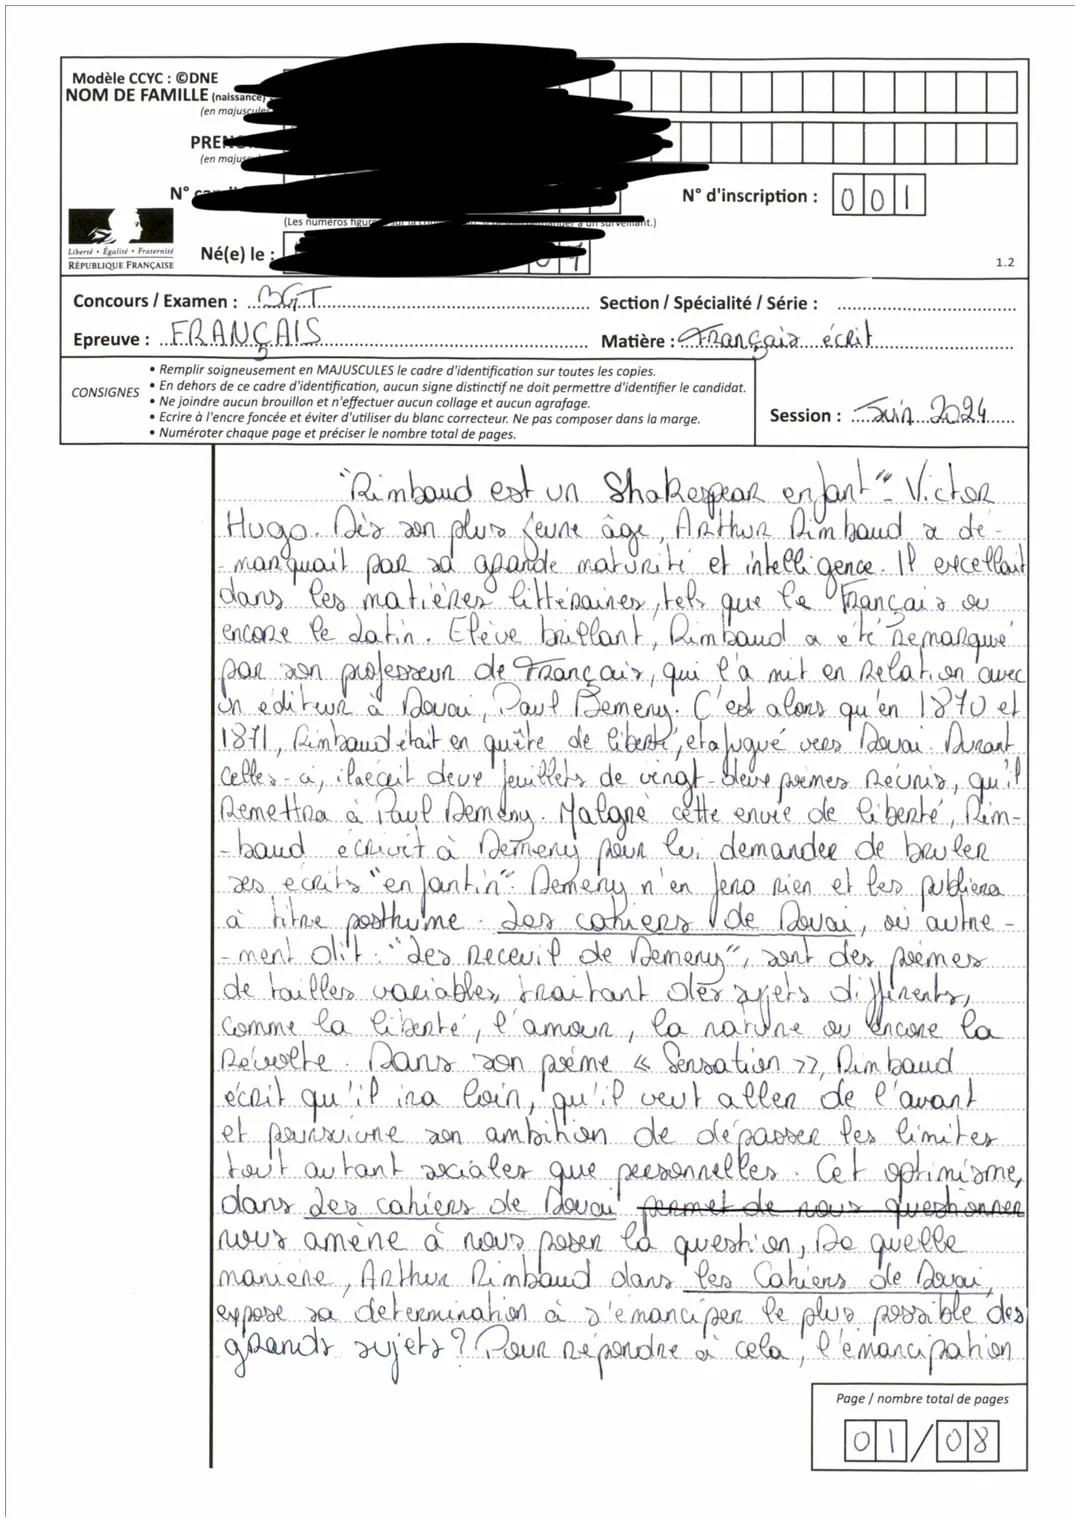 Modèle CCYC : ©DNE
NOM DE FAMILLE (naissance)
(en majuscules
PREN
(en majus
N°
N° d'inscription : 001
(Les numéros figure
un surveillant.)
Né(e) le :
Liberté • Égalité • Fraternité
RÉPUBLIQUE FRANÇAISE
1.2
Concours / Examen : BGT
Section / Spécialité / Série :
Epreuve : FRANÇAIS
Matière : Français écrit
CONSIGNES
• Remplir soigneusement en MAJUSCULES le cadre d'identification sur toutes les copies.
• En dehors de ce cadre d'identification, aucun signe distinctif ne doit permettre d'identifier le candidat.
• Ne joindre aucun brouillon et n'effectuer aucun collage et aucun agrafage.
• Ecrire à l'encre foncée et éviter d'utiliser du blanc correcteur. Ne pas composer dans la marge.
• Numéroter chaque page et préciser le nombre total de pages.
Session : Juin 2024
"Rimbaud est un Shakespear enfant" - Victor
Hugo. Dès son plus jeune âge, Arthur Rimbaud a dé-
-manquait par sa grande maturité et intelligence. Il excellait
dans les matières littéraires, tels que le Français ou
encore le Latin. Elève brillant, Rimbaud a été remarqué
par son professeur de Français, qui l'a mit en relation avec
un éditeur à Douai, Paul Demeny. C'est alors qu'en 1870 et
1871, Rimbaud était en quête de liberté, et a fugué vers Douai. Durant
celles-ci, il écrit deux feuillets de vingt-deux poèmes réunis, qu'il
remettra à Paul Demeny. Malgré cette envie de liberté, Rim-
-baud écrivit à Demeny pour lui demander de bruler
ses écrits "enfantin". Demeny n'en fera rien et les publiera
à titre posthume. Les cahiers de Douai, ou autre-
-ment dit : "Les Receuil de Demeny", sont des poèmes
de tailles variables, traitant des sujets différents,
comme la liberté, l'amour, la nature ou encore la
Révolte. Dans son poème « Sensation », Rimbaud
écrit qu'il ira loin, qu'il veut aller de l'avant
et poursuivre son ambition de dépasser les limites
tout autant sociales que personnelles. Cet optimisme,
dans Les cahiers de Douai permet de nous questionner
nous amène à nous poser la question, De quelle
manière, Arthur Rimbaud dans les Cahiers de Douai,
expose sa détermination à s'émanciper le plus possible des
grands sujets ? Pour répondre à cela, l'émancipation
Page / nombre total de pages
01 / 08